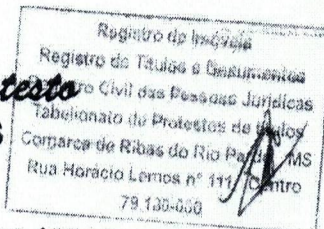 Registro de Imóveis
Registro de Títulos e Documentos
testo
Civil das Pessoas Jurídicas
Tabelionato de Protestos de
Comarca de Ribas do Rio MS
Rua Horácio Lemos nº 111
79.180-000